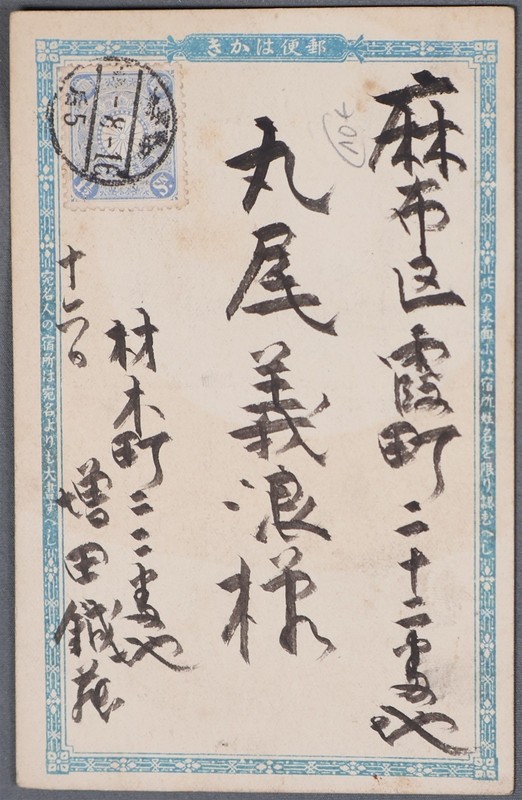 郵便はかき
此の表面には宿所姓名を限り認むへし
麻布区霞町二十二番地
丸尾義浪様
材木町二二番地
増田鉄蔵
宛名人の宿所は宛名よりも大書すへし
104
1½Sⁿ